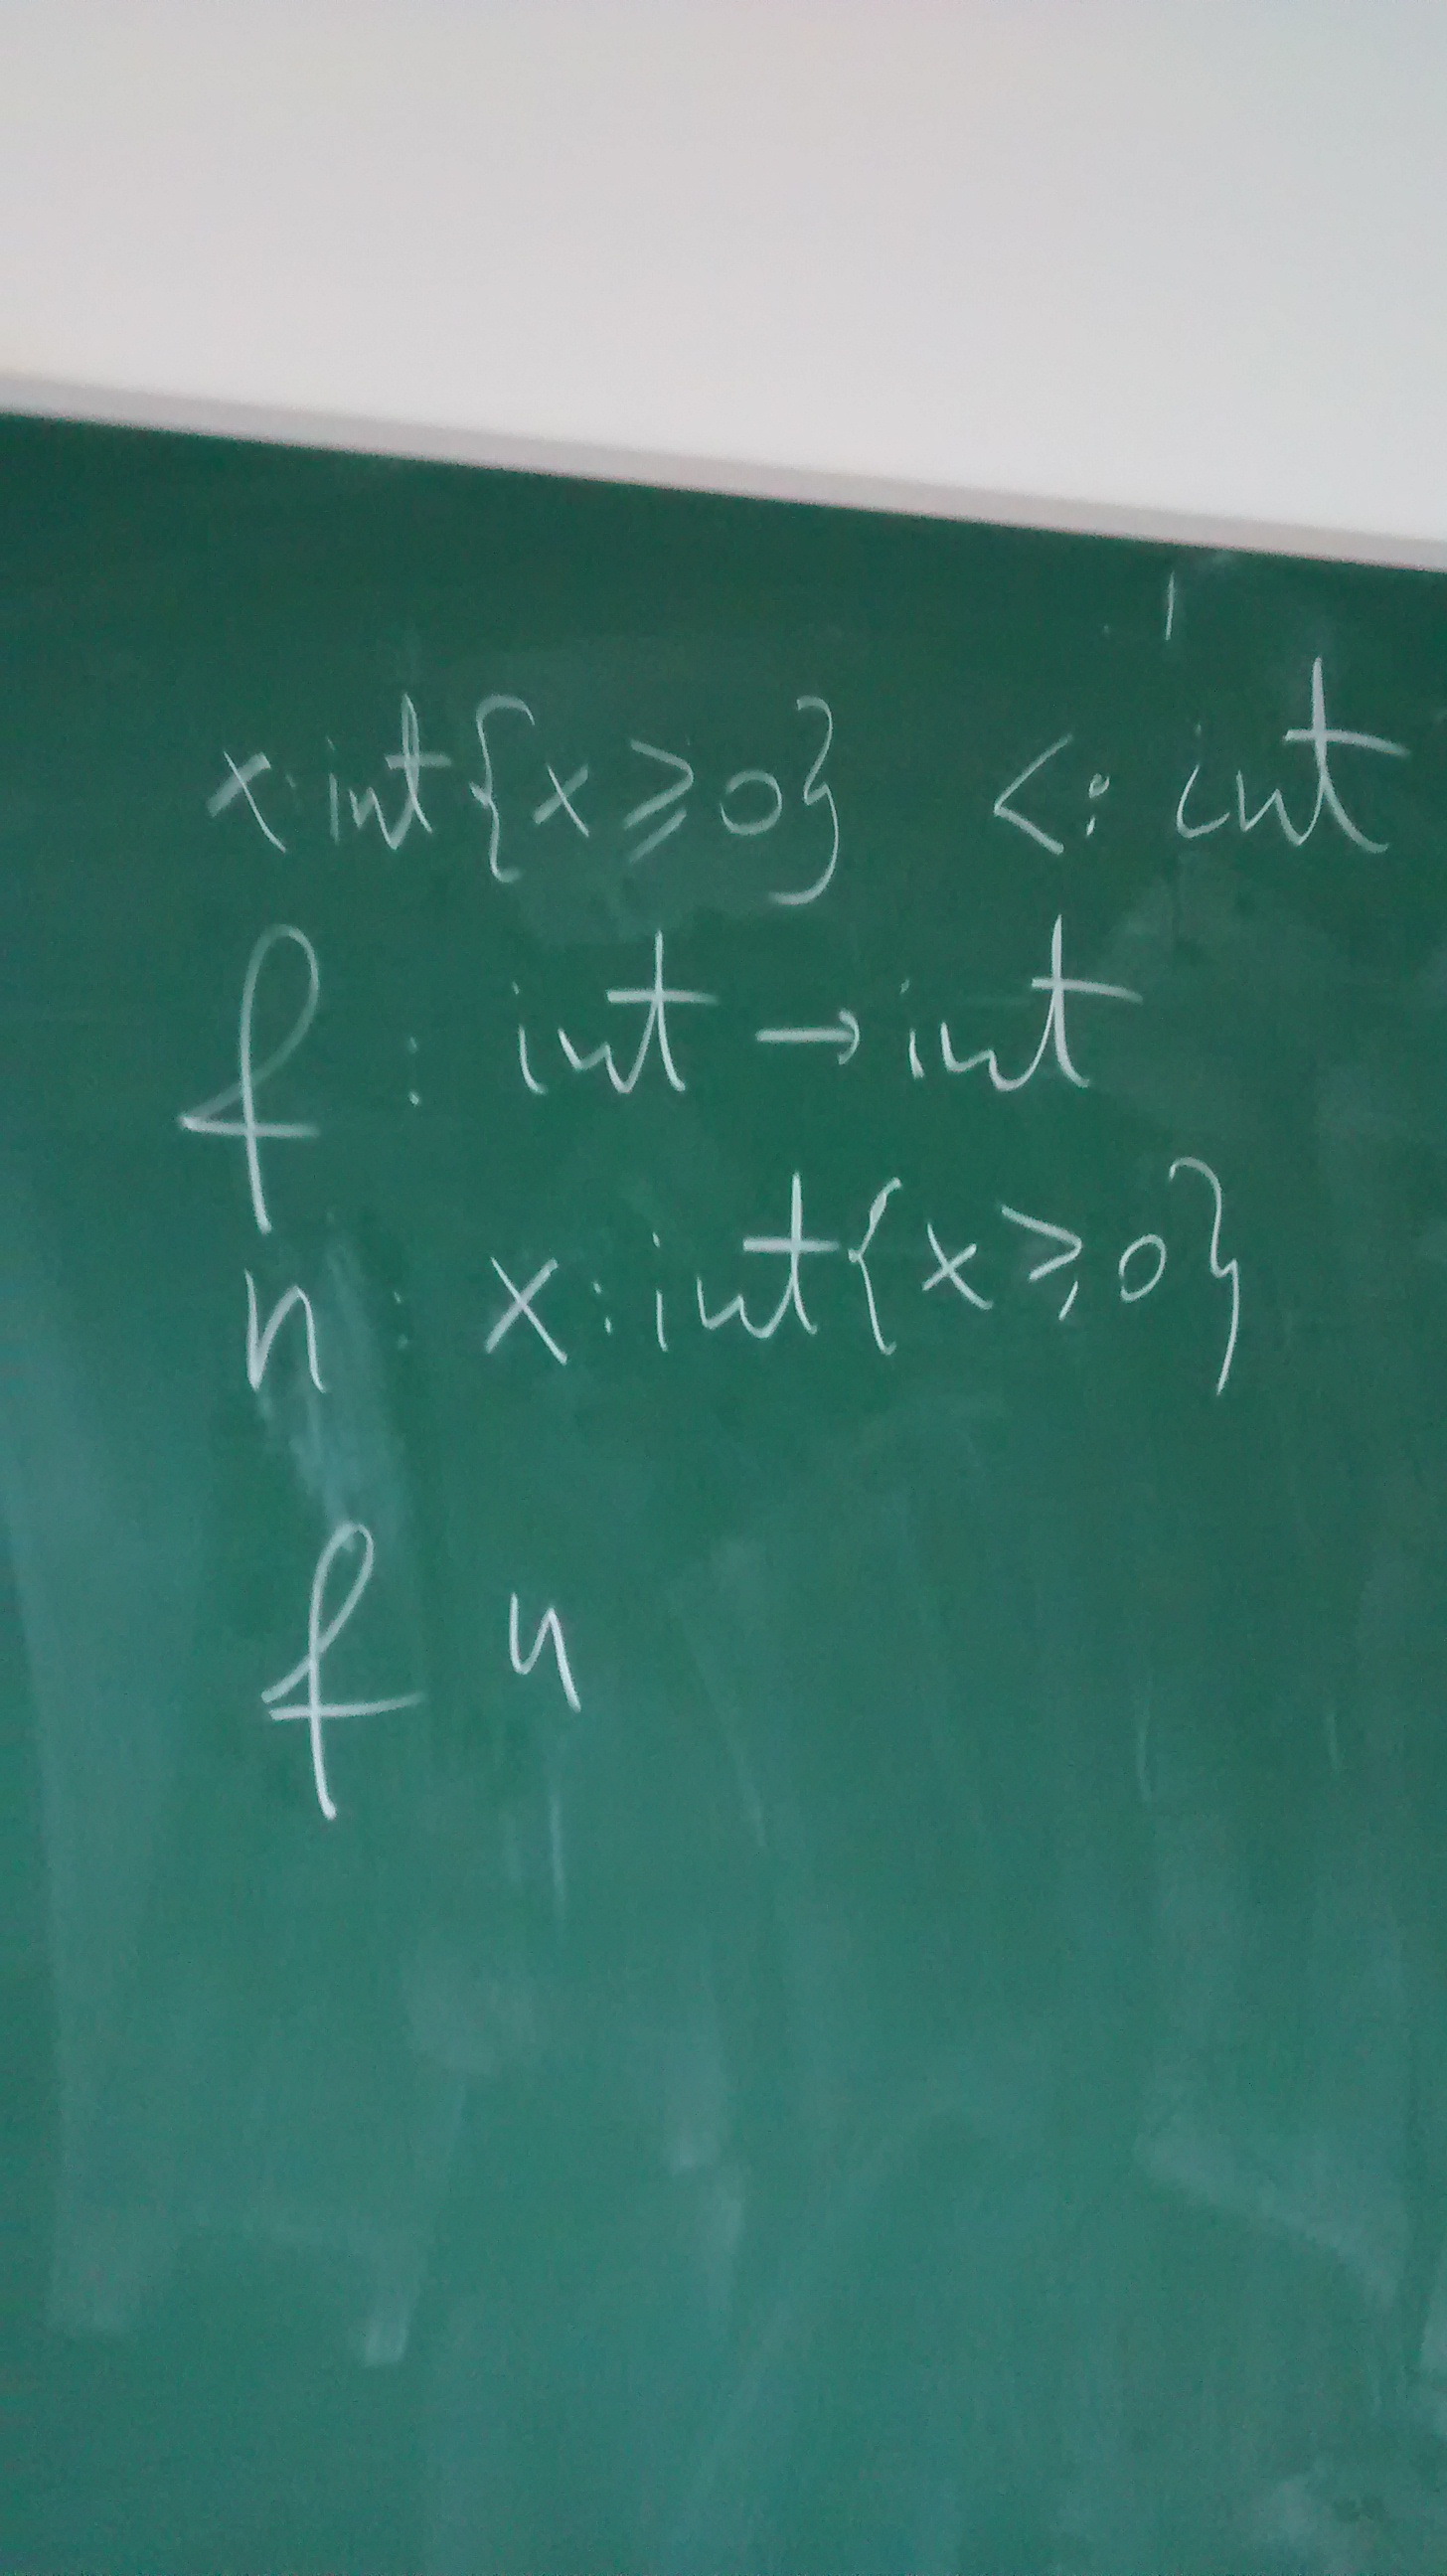 x:int{x⩾0} <: int
f : int → int
n : x:int{x⩾0}
f n